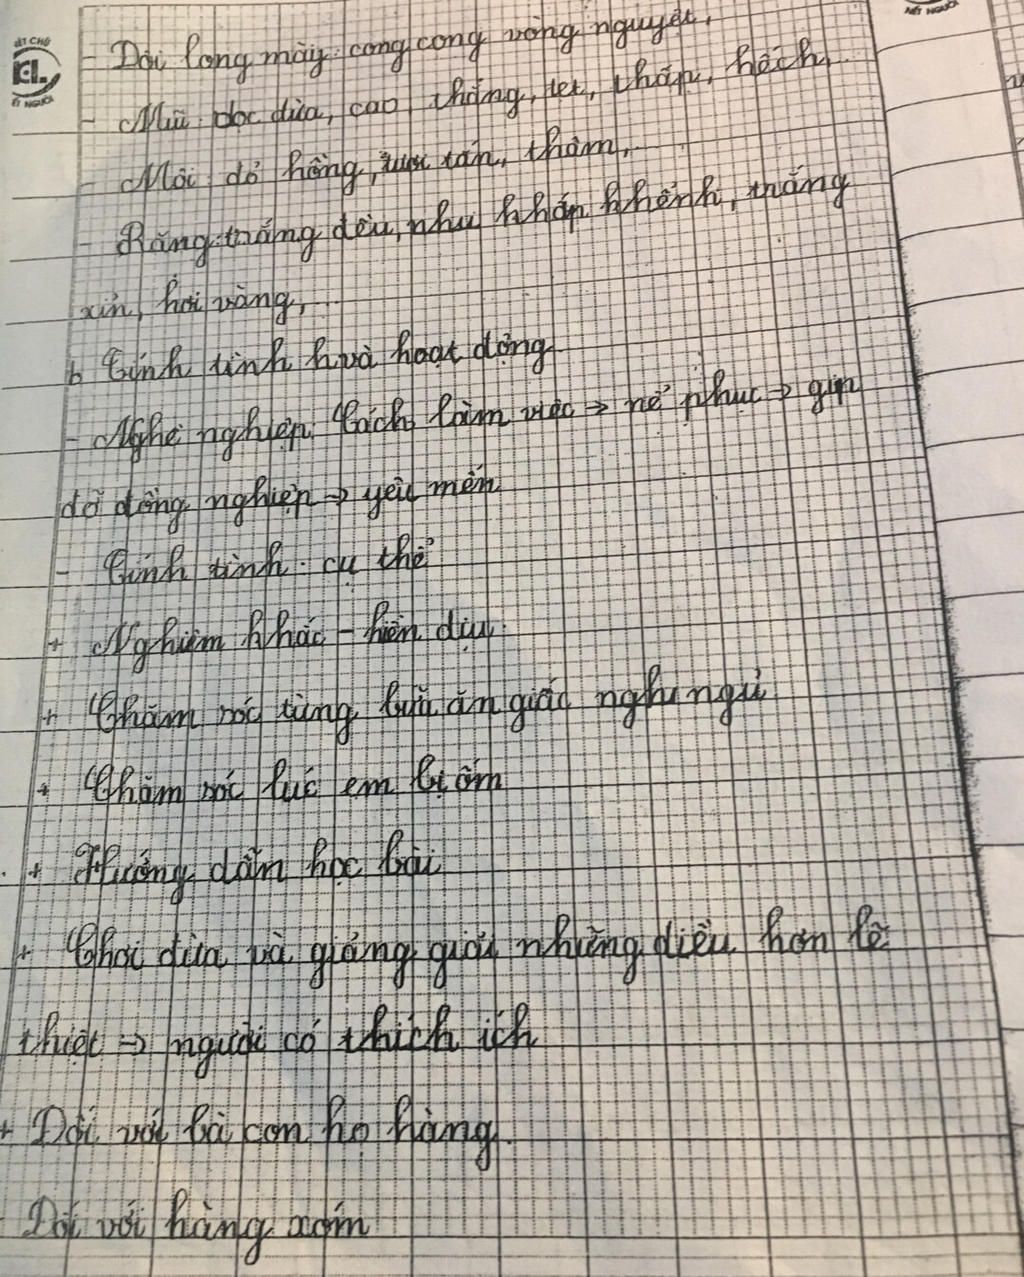 - Đôi lông mày: cong cong vòng nguyệt,
- Mũi: dọc dừa, cao, thẳng, tẹt, thấp, hếch,
- Môi: đỏ hồng, tươi tắn, thâm,
- Răng: trắng đều, như khấp khểnh, trắng
xỉn, hơi vàng,
b Tính tình và hoạt động
- Nghề nghiệp: Cách làm việc → nể phục → giúp
đỡ đồng nghiệp → yêu mến
- Tính tình: cụ thể
+ Nghiêm khắc - hiền dịu
+ Chăm sóc từng bữa ăn giấc nghi ngủ
+ Chăm sóc lúc em bị ốm
+ Hướng dẫn học bài
+ Chơi đùa và giảng giải những điều hơn lẽ
thiệt → người có thích ích
+ Đối với bà con họ hàng
Đối với hàng xóm